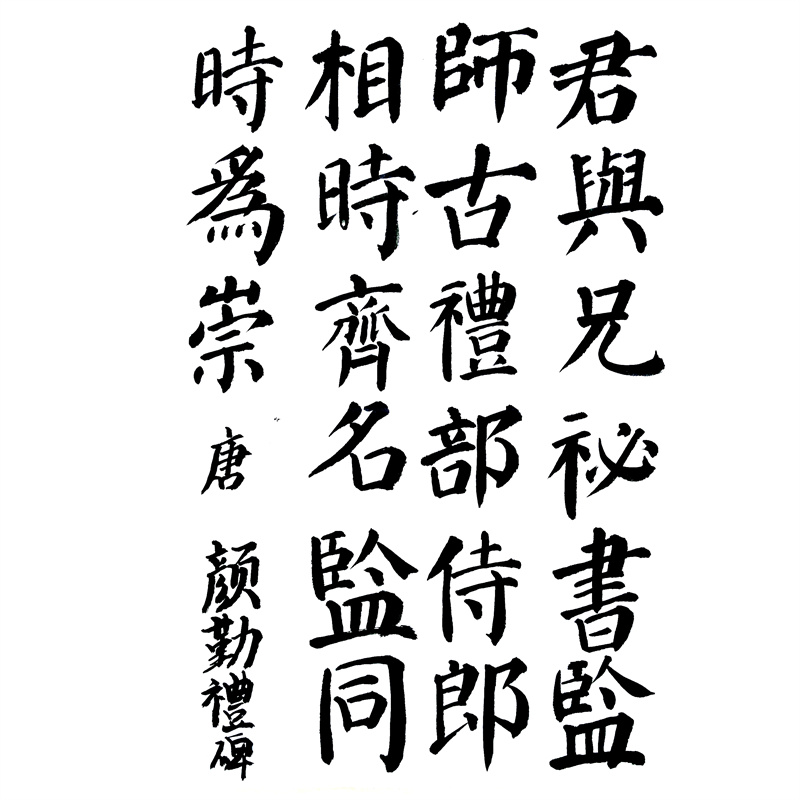 君與兄祕書監
師古禮部侍郎
相時齊名監同
時爲崇 唐 顔勤禮碑